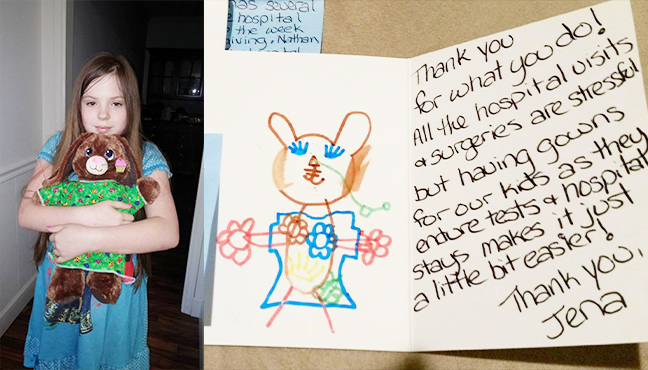 has several
hospital
the week
giving. Nathan
Thank you
for what you do!
All the hospital visits
& surgeries are stressful
but having gowns
for our kids as they
endure tests & hospital
stays makes it just
a little bit easier!
Thank you,
Jena